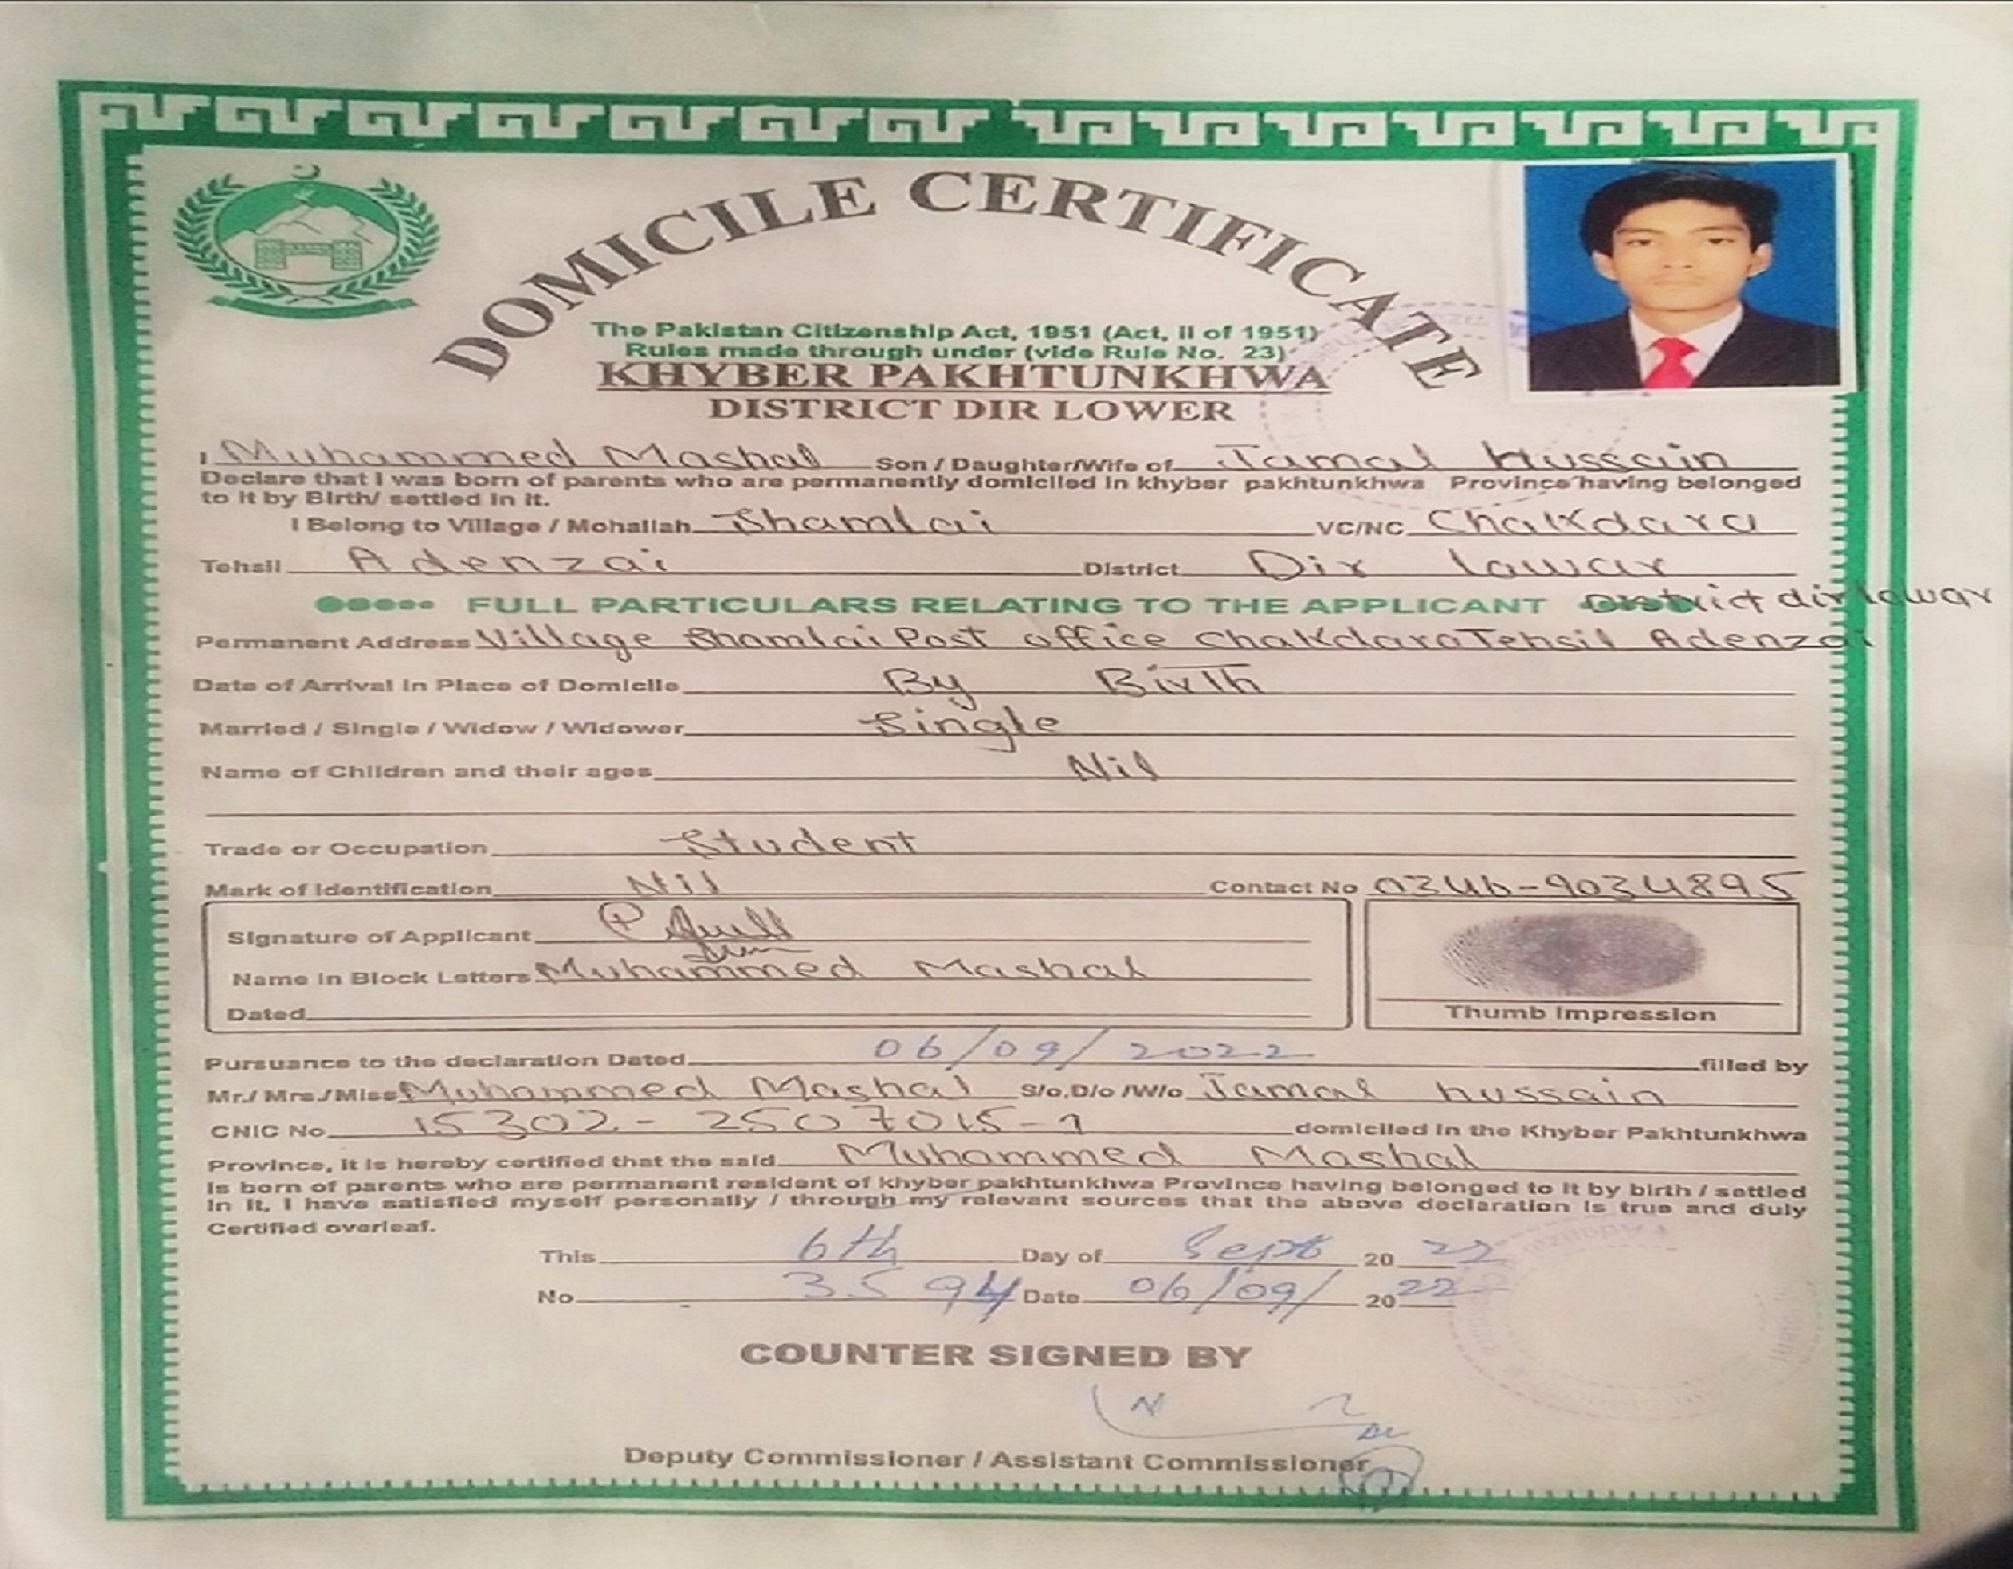 DOMICILE CERTIFICATE
The Pakistan Citizenship Act, 1951 (Act, II of 1951)
Rules made through under (vide Rule No. 23)
KHYBER PAKHTUNKHWA
DISTRICT DIR LOWER
I Muhammed Mashal Son / Daughter/Wife of Jamal Hussain
Declare that I was born of parents who are permanently domiciled in khyber pakhtunkhwa Province having belonged
to it by Birth/ settled in it.
I Belong to Village / Mohallah Shamlai VC/NC Chakdara
Tehsil Adenzai District Dir lawar
FULL PARTICULARS RELATING TO THE APPLICANT District dir lowar
Permanent Address Village Shamlai Post office Chakdara Tehsil Adenzai
Date of Arrival in Place of Domicile By Birth
Married / Single / Widow / Widower Single
Name of Children and their ages Nil
Trade or Occupation Student
Mark of Identification Nil Contact No 0346-9034895
Signature of Applicant
Name in Block Letters Muhammed Mashal
Dated
Thumb Impression
Pursuance to the declaration Dated 06/09/2022 filled by
Mr./ Mrs./Miss Muhammed Mashal S/o,D/o /W/o Jamal hussain
CNIC No 15302-2507015-1 domiciled in the Khyber Pakhtunkhwa
Province, it is hereby certified that the said Muhammed Mashal
Is born of parents who are permanent resident of khyber pakhtunkhwa Province having belonged to it by birth / settled
in it, I have satisfied myself personally / through my relevant sources that the above declaration is true and duly
Certified overleaf.
This 6th Day of Sept 20 22
No 3594 Date 06/09/ 2022
COUNTER SIGNED BY
Deputy Commissioner / Assistant Commissioner